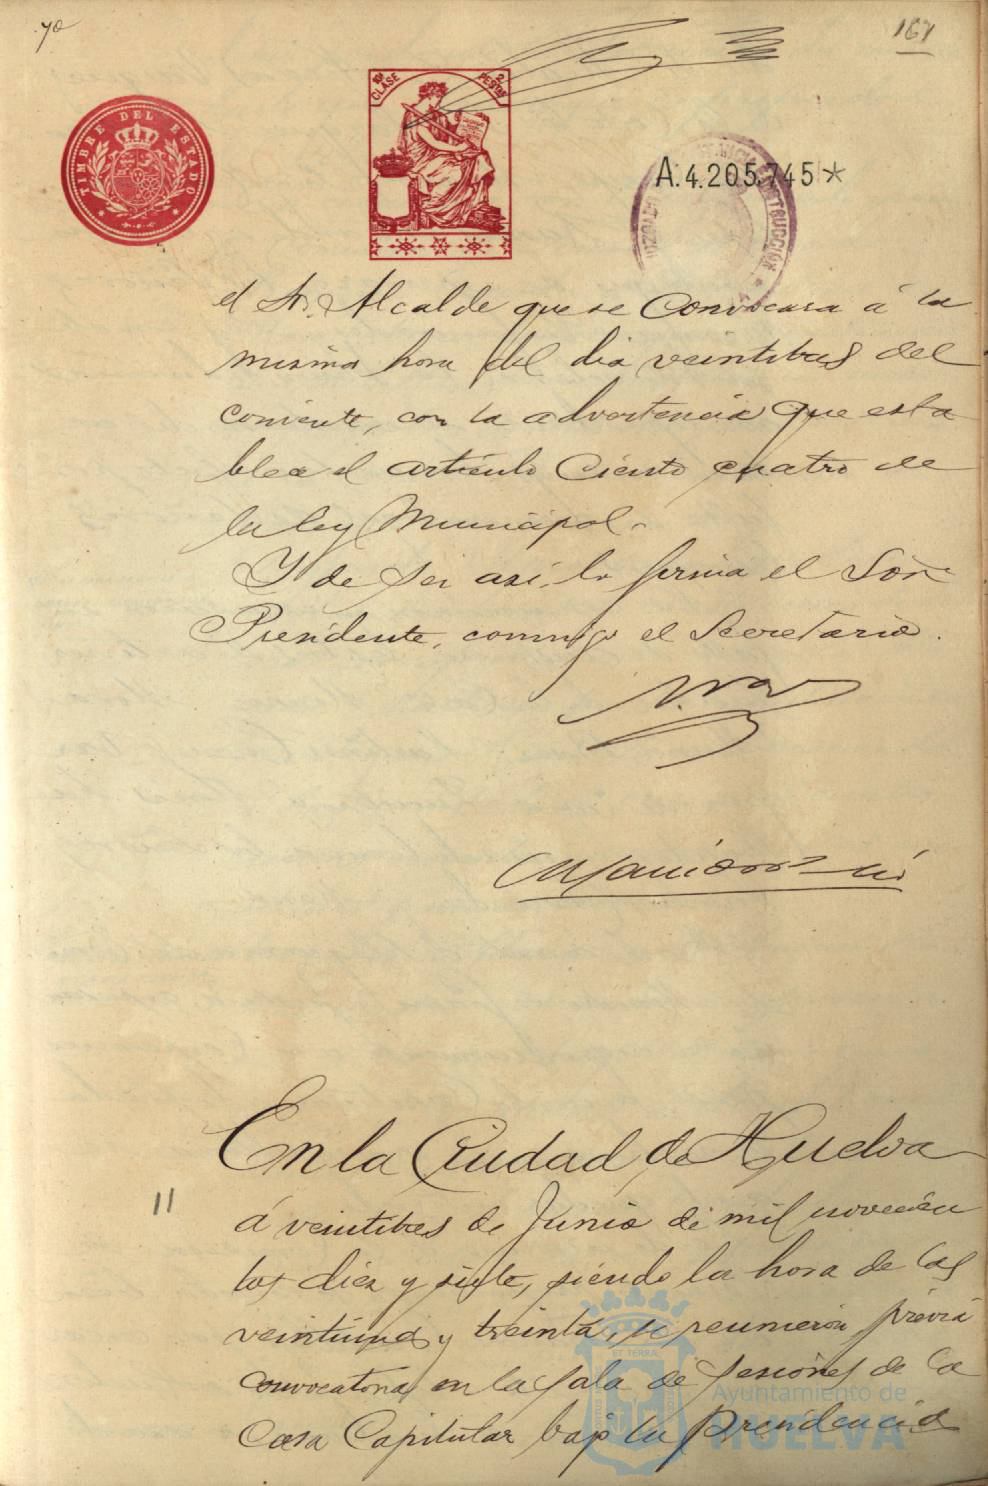 70
167
TIMBRE DEL ESTADO
10ª CLASE
2 PESETAS
A.4.205.745*
el Sr. Alcalde que se convocara á la
misma hora del dia veintitres del
corriente, con la advertencia que esta
blece el artículo ciento cuatro de
la ley Municipal.
Y de ser así, lo firma el Señor
Presidente, conmigo el Secretario.
En la Ciudad de Huelva
11
á veintitres de Junio de mil novecien
tos diez y siete, siendo la hora de las
veintiuna y treinta, se reunieron prévia
convocatoria en la Sala de Sesiones de la
Casa Capitular bajo la presidencia
Ayuntamiento de
HUELVA